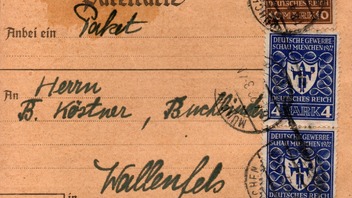 Paketkarte
Anbei ein Paket
An Herrn
B. Köstner, Buchbinder
Wallenfels
in
DEUTSCHE GEWERBE
SCHAU MÜNCHEN 1922
DEUTSCHES REICH
4 MARK 4
DEUTSCHE GEWERBE
SCHAU MÜNCHEN 1922
DEUTSCHES REICH